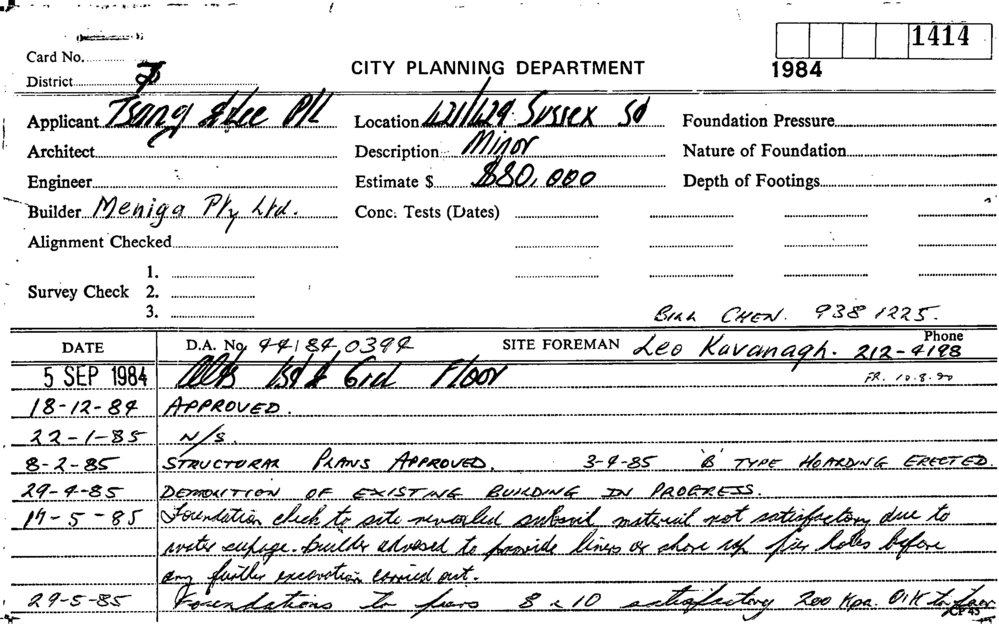 1414
1984
Card No.
District 7
CITY PLANNING DEPARTMENT
Applicant Tsang & Lee P/L
Location 421/429 Sussex St
Foundation Pressure
Architect
Description Minor
Nature of Foundation
Engineer
Estimate $ $80,000
Depth of Footings
Builder Meniga Pty Ltd.
Conc. Tests (Dates)
Alignment Checked
1.
Survey Check 2.
3.
BILL CHEN. 938 1225.
DATE
D.A. No. 44 84 0394
SITE FOREMAN Leo Kavanagh.
Phone
212-4198
5 SEP 1984
Alts 1st & Grd Floor
18-12-84 APPROVED.
22-1-85 N/S.
8-2-85 STRUCTURAL PLANS APPROVED. 3-4-85 'B' TYPE HOARDING ERECTED.
29-4-85 DEMOLITION OF EXISTING BUILDING IN PROGRESS.
17-5-85 Foundation check to site revealed subsoil material not satisfactory due to
water seepage. builder advised to provide liners or shore up pier holes before
any further excavation carried out.
29-5-85 Foundations to piers 8 & 10 satisfactory 200 Kpa. O/K to pour
CP 45